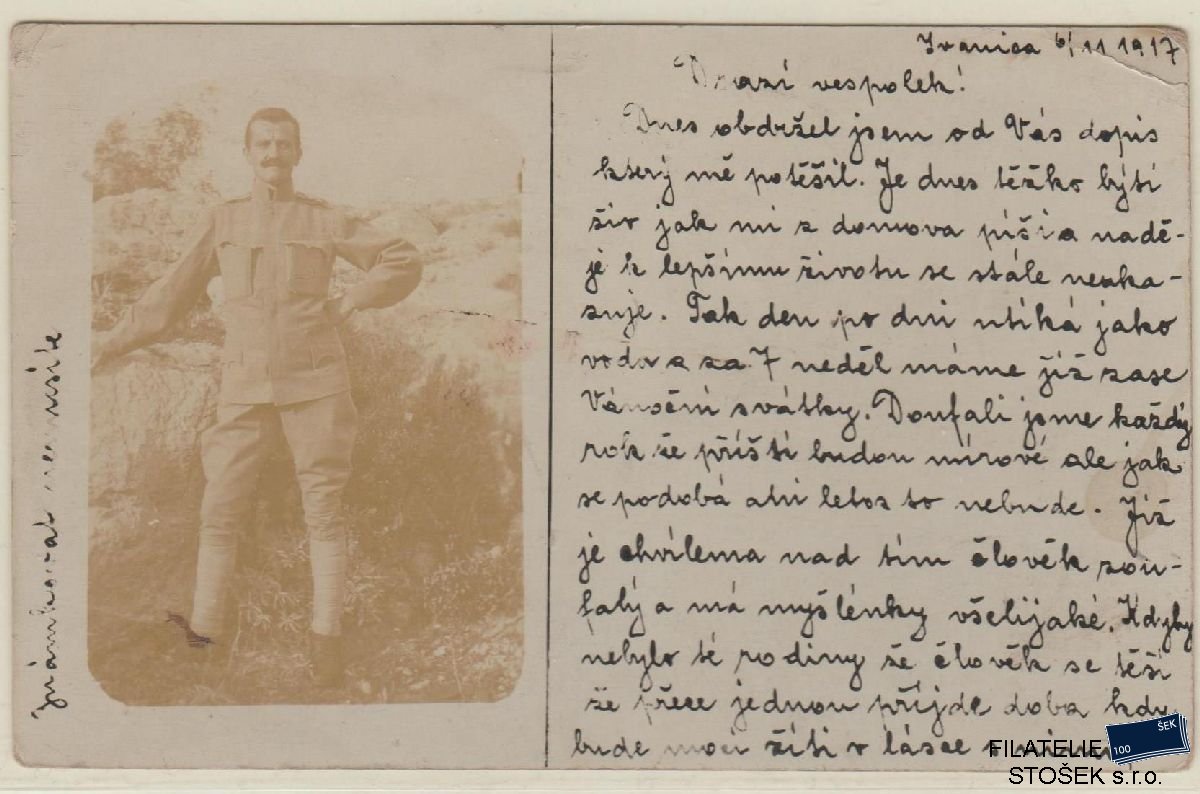 Ivanica 6/11 1917
Drazí vespolek!
Dnes obdržel jsem od Vás dopis
který mě potěšil. Je dnes těžko býti
živ jak mi z domova píši a nadě-
je k lepšímu životu se stále neuka-
zuje. Tak den po dni utíká jako
voda a za 7 neděl máme již zase
Vánoční svátky. Doufali jsme každý
rok že příští budou mírové ale jak
se podobá ani letos to nebude. Již
je chvílema nad tím člověk zou-
falý a má myšlénky všelijaké. Kdyby
nebylo té rodiny že člověk se těší
že přece jednou příjde doba kdy
bude moci žíti v lásce v
známkovat nemusíte
FILATELIE
STOŠEK s.r.o.
100
ŠEK